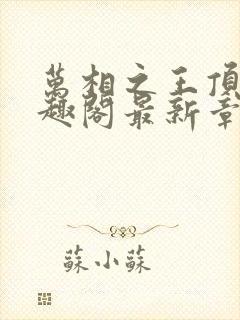 萬相之王頂
趣閣最新章
蘇小蘇